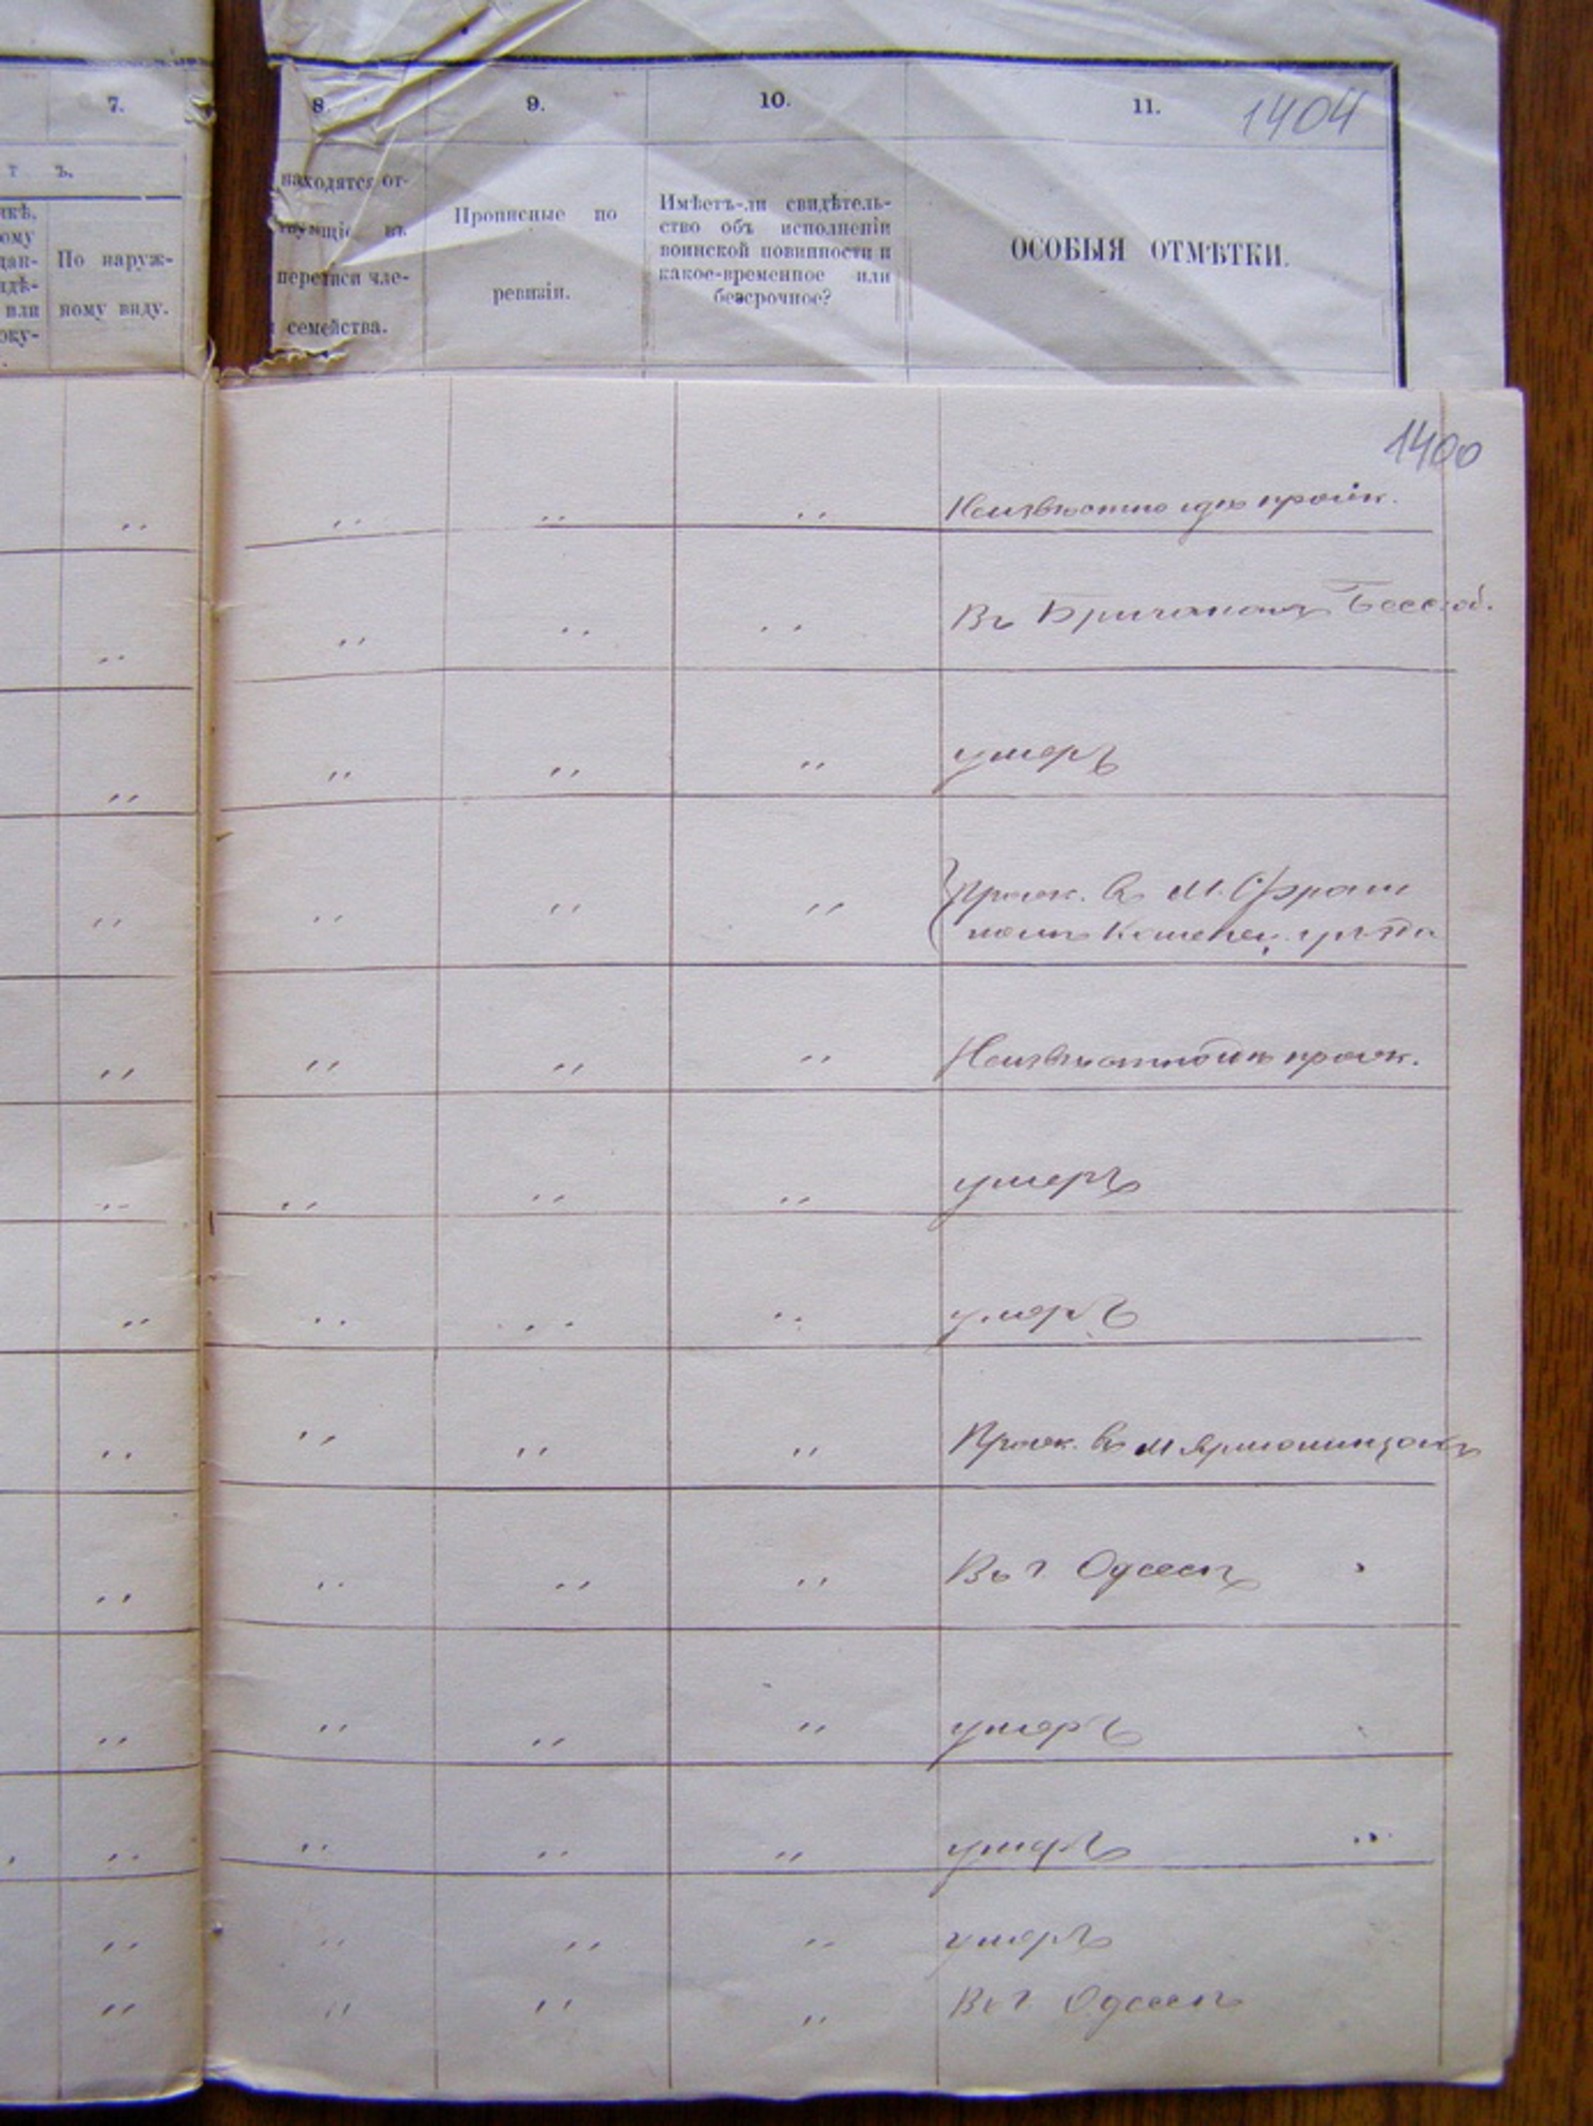 7.
8.
9.
10.
11.
1404
т ъ.
По наруж-
ному виду.
находятся от-
въ
переписи чле-
семейства.
Прописные по
ревизіи.
Имѣетъ-ли свидѣтель-
ство объ исполненіи
воинской повинности и
какое-временное или
безсрочное?
ОСОБЫЯ ОТМѢТКИ.
1400
Неизвѣстно гдѣ прожи.
Въ Бричанахъ Бессараб.
умеръ
Прож. въ м. Фрам
полѣ Каменец. уѣзда
Неизвѣстно гдѣ прож.
умеръ
умеръ
Прож. въ м Ярмолинцахъ
Въ г Одессѣ
умеръ
умеръ
умеръ
Въ г Одессѣ